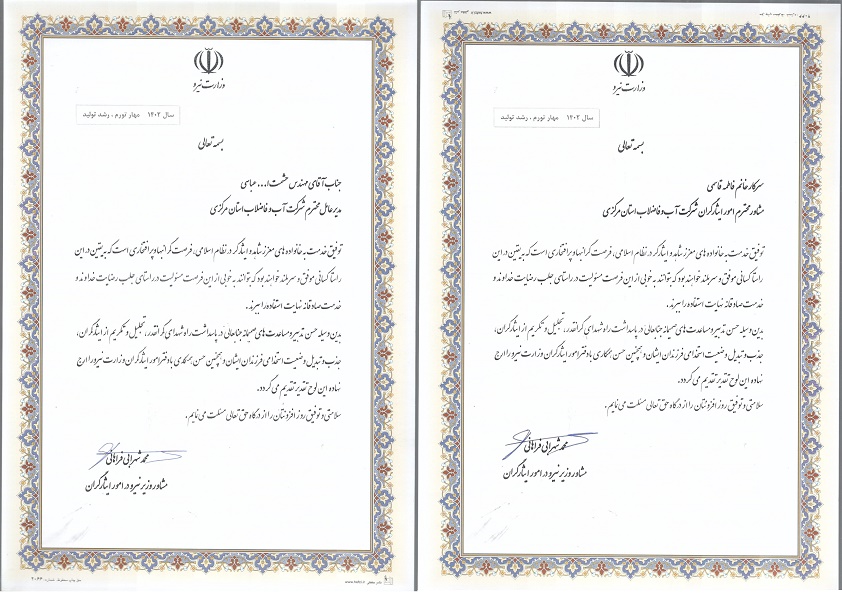 وزارت نیرو
سال ۱۴۰۲ مهار تورم ، رشد تولید
بسمه تعالی
جناب آقای مهندس حشمت ا... عباسی
مدیرعامل محترم شرکت آب و فاضلاب استان مرکزی
توفیق خدمت به خانواده های معزز شاهد و ایثارگر در نظام اسلامی، فرصت گرانبها و پرافتخاری است که به یقین در این
راستا کسانی موفق و سربلند خواهند بود که بتوانند به خوبی از این فرصت مسئولیت در راستای جلب رضایت خداوند و
خدمت صادقانه نهایت استفاده را ببرند.
بدین وسیله حسن تدبیر و مساعدت های صمیمانه جنابعالی در پاسداشت راه شهدای گرانقدر، تجلیل و تکریم از ایثارگران،
جذب و تبدیل وضعیت استخدامی فرزندان ایشان و همچنین حسن همکاری با دفتر امور ایثارگران وزارت نیرو را ارج
نهاده این لوح تقدیر تقدیم می گردد.
سلامتی و توفیق روز افزونتان را از درگاه حق تعالی مسئلت می نمایم.
محمد شهرابی فراهانی
مشاور وزیر نیرو در امور ایثارگران
وزارت نیرو
سال ۱۴۰۲ مهار تورم ، رشد تولید
بسمه تعالی
سرکار خانم فاطمه قاسمی
مشاور محترم امور ایثارگران شرکت آب و فاضلاب استان مرکزی
توفیق خدمت به خانواده های معزز شاهد و ایثارگر در نظام اسلامی، فرصت گرانبها و پرافتخاری است که به یقین در این
راستا کسانی موفق و سربلند خواهند بود که بتوانند به خوبی از این فرصت مسئولیت در راستای جلب رضایت خداوند و
خدمت صادقانه نهایت استفاده را ببرند.
بدین وسیله حسن تدبیر و مساعدت های صمیمانه جنابعالی در پاسداشت راه شهدای گرانقدر، تجلیل و تکریم از ایثارگران،
جذب و تبدیل وضعیت استخدامی فرزندان ایشان و همچنین حسن همکاری با دفتر امور ایثارگران وزارت نیرو را ارج
نهاده این لوح تقدیر تقدیم می گردد.
سلامتی و توفیق روز افزونتان را از درگاه حق تعالی مسئلت می نمایم.
محمد شهرابی فراهانی
مشاور وزیر نیرو در امور ایثارگران